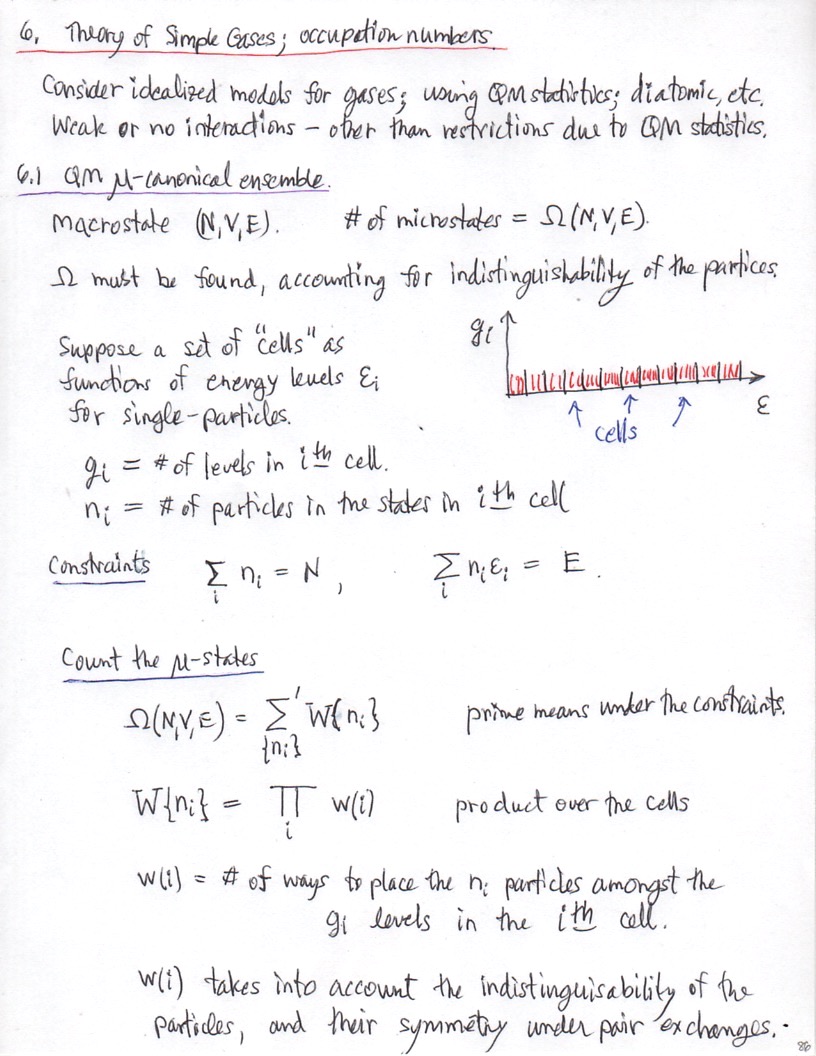 6. Theory of Simple Gases; occupation numbers
Consider idealized models for gases; using QM statistics; diatomic, etc.
Weak or no interactions – other than restrictions due to QM statistics.
6.1 QM μ-canonical ensemble.
Macrostate (N,V,E). # of microstates = Ω(N,V,E).
Ω must be found, accounting for indistinguishability of the partices.
Suppose a set of "cells" as
functions of energy levels εi
for single-particles.
gi
ε
cells
gi = # of levels in ith cell.
ni = # of particles in the states in ith cell
Constraints Σi ni = N, Σi niεi = E.
Count the μ-states
Ω(N,V,E) = Σ'{ni} W{ni} prime means under the constraints.
W{ni} = Πi w(i) product over the cells
w(i) = # of ways to place the ni particles amongst the
gi levels in the ith cell.
w(i) takes into account the indistinguisability of the
particles, and their symmetry under pair exchanges.
86